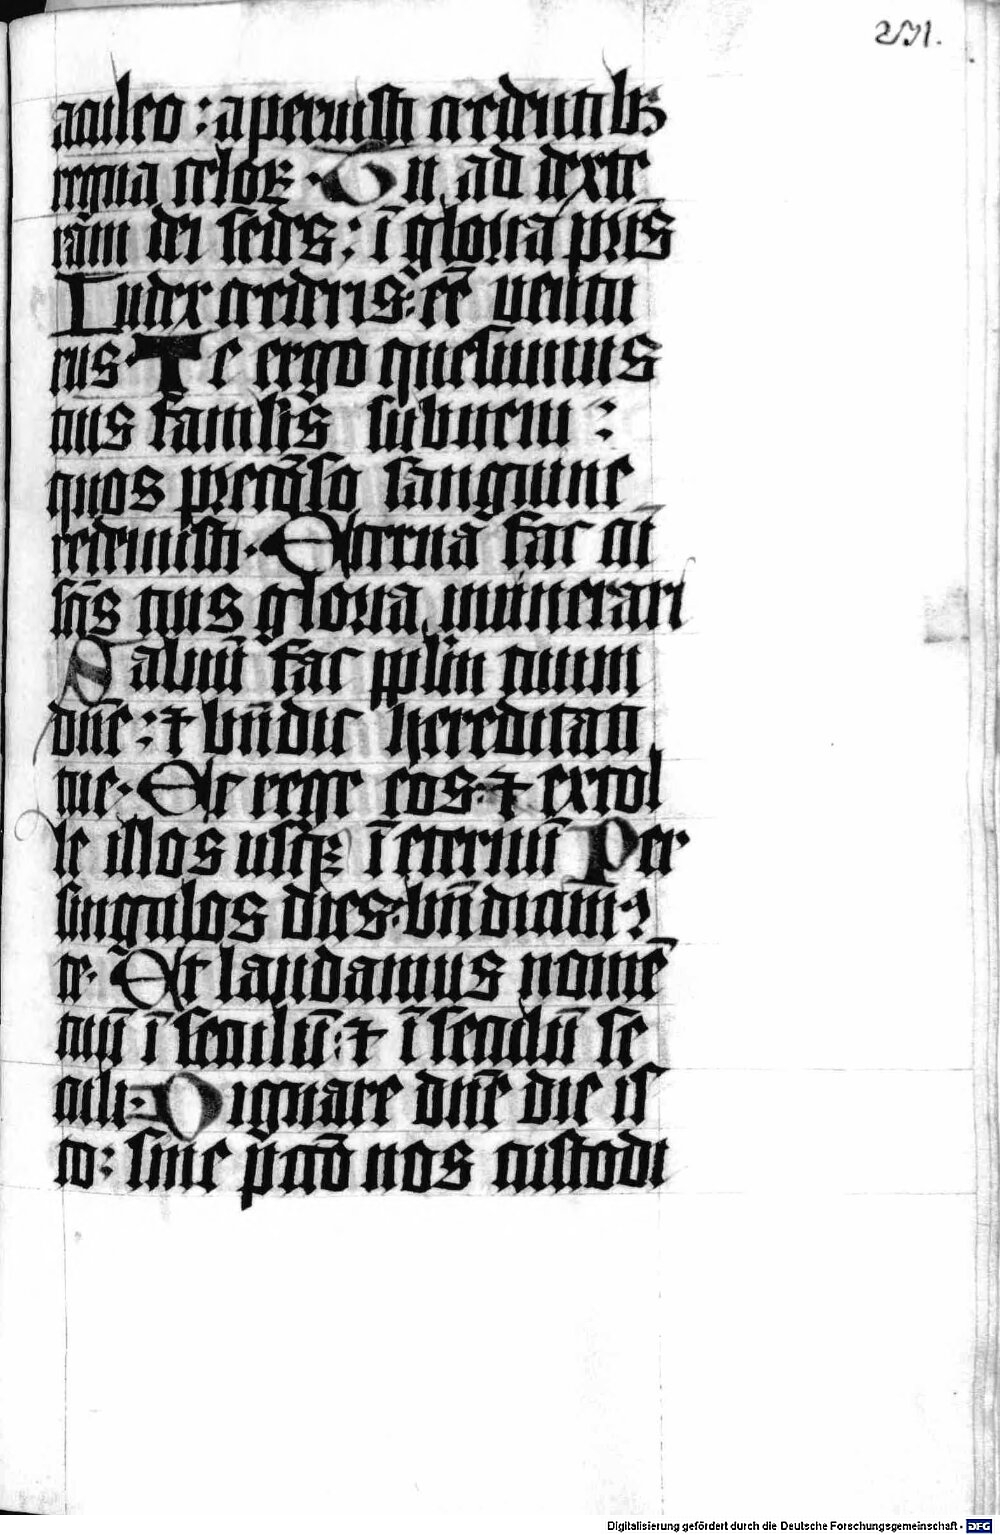 251.
aculeo : aperuisti credentibꝫ
regna celoꝝ . Tu ad dexte
ram dei sedes : ī gloria pr̄is
Iudex crederis : eē ventu
rus . Te ergo quesumus
tuis famlis̄ subueni :
quos precōso sanguine
redemisti . Eterna fac cū
sc̄is tuis gloria munerari
Saluū fac ppl̄m tuum
dn̄e : ⁊ bn̄dic hereditati
tue . Et rege eos . ⁊ extol
le illos usqꝫ ī eternū Per
singulos dies . bn̄dicim9
te . Et laudamus nomē
tuū ī seculū : ⁊ ī seculū se
culi . Dignare dn̄e die is
to : sine pc̄cō nos custodi
Digitalisierung gefördert durch die Deutsche Forschungsgemeinschaft - DFG